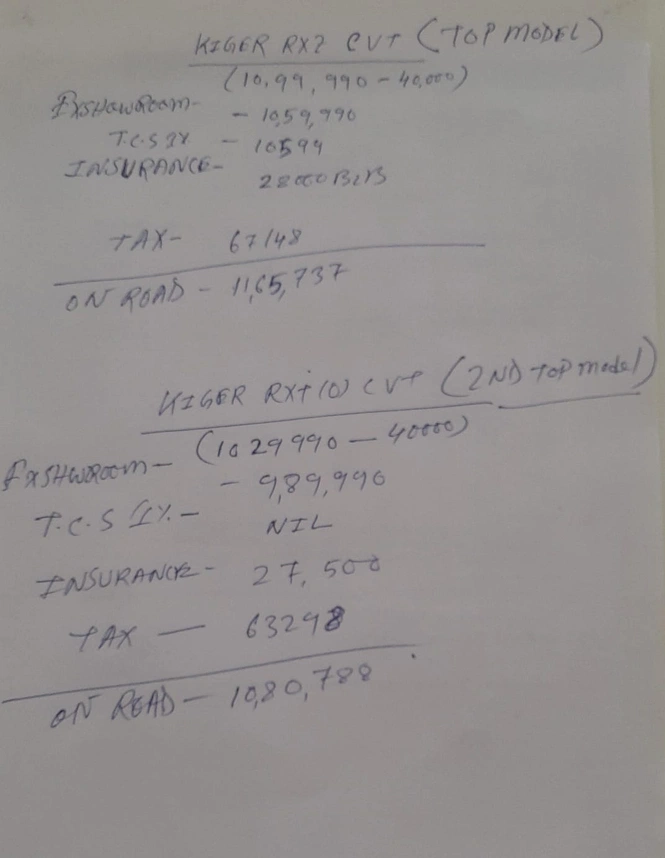 KIGER RXZ CVT (TOP MODEL)
(10,99,990-40,000)
EXSHOWROOM- - 10,59,990
T.C.S 1% - 10599
INSURANCE- 28000 B2B
TAX- 67148
ON ROAD - 11,65,737
KIGER RXT(O) CVT (2ND TOP model)
(1029990-40000)
EXSHWROOM- - 9,89,990
T.C.S 1%- NIL
INSURANCE- 27,500
TAX - 63298
ON READ- 10,80,788